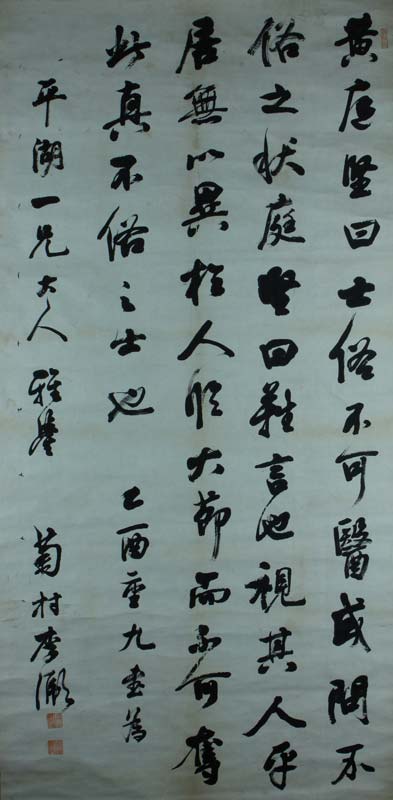 黄庭堅曰士俗不可醫或問不
俗之状庭堅曰難言也視其人平
居無以異於人臨大節而不可奪
此真不俗之士也 乙酉重九書為
平湖一兄大人雅鑒 菊村李灝